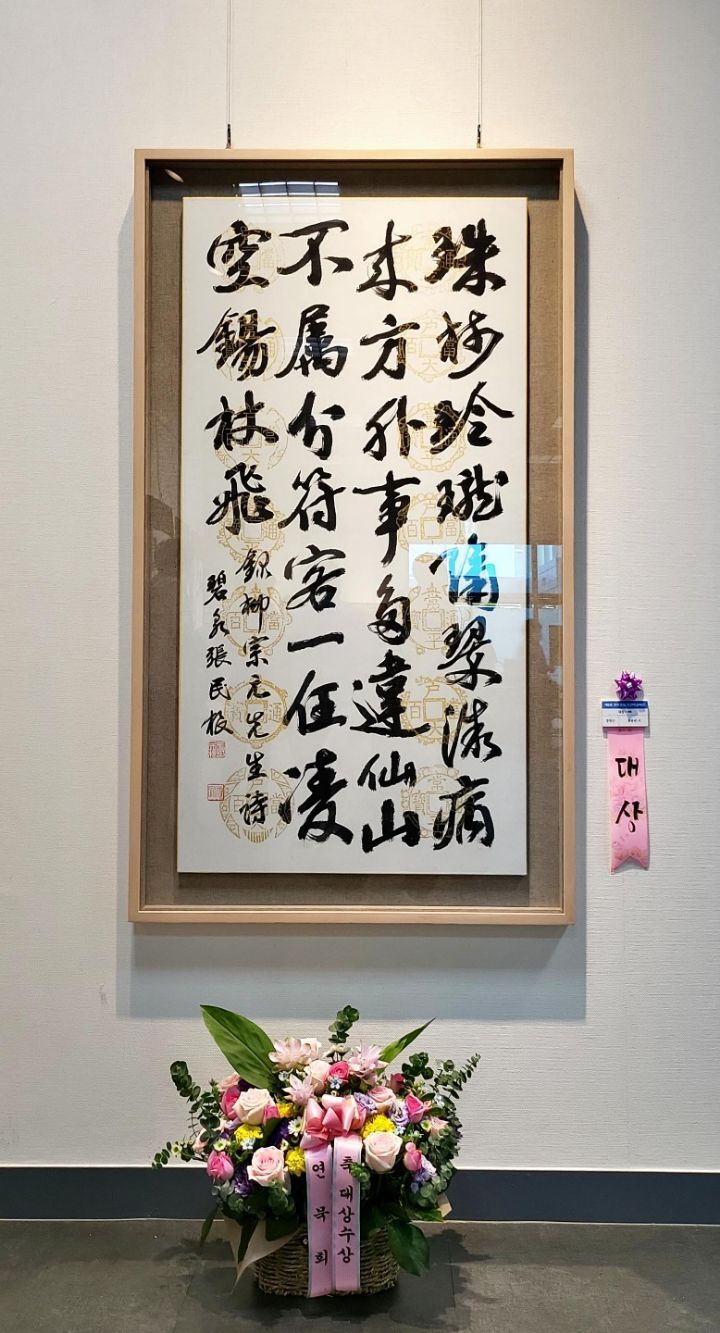 珠樹玲瓏隔翠微病
來方外事多違仙山
不属分符客一任凌
空錫杖飛
録柳宗元先生詩
碧 張民
대상
축대상수상
연묵회